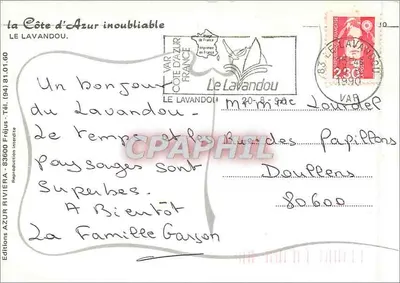 la Côte d'Azur inoubliable
LE LAVANDOU.
VAR
CÔTE D'AZUR
FRANCE
LE LAVANDOU
Le Lavandou
83 LE LAVANDOU
1990
VAR
2,30
20-8-90
Un bonjour
du Lavandou.
Le temps et les
paysages sont
superbes.
A Bientôt
La Famille Garçon
Mme Lourdel
Rue des Papillons
Doullens
80600
CPAPHIL
Editions AZUR RIVIERA - 83600 Fréjus - Tél. (94) 81.01.60
Reproduction interdite